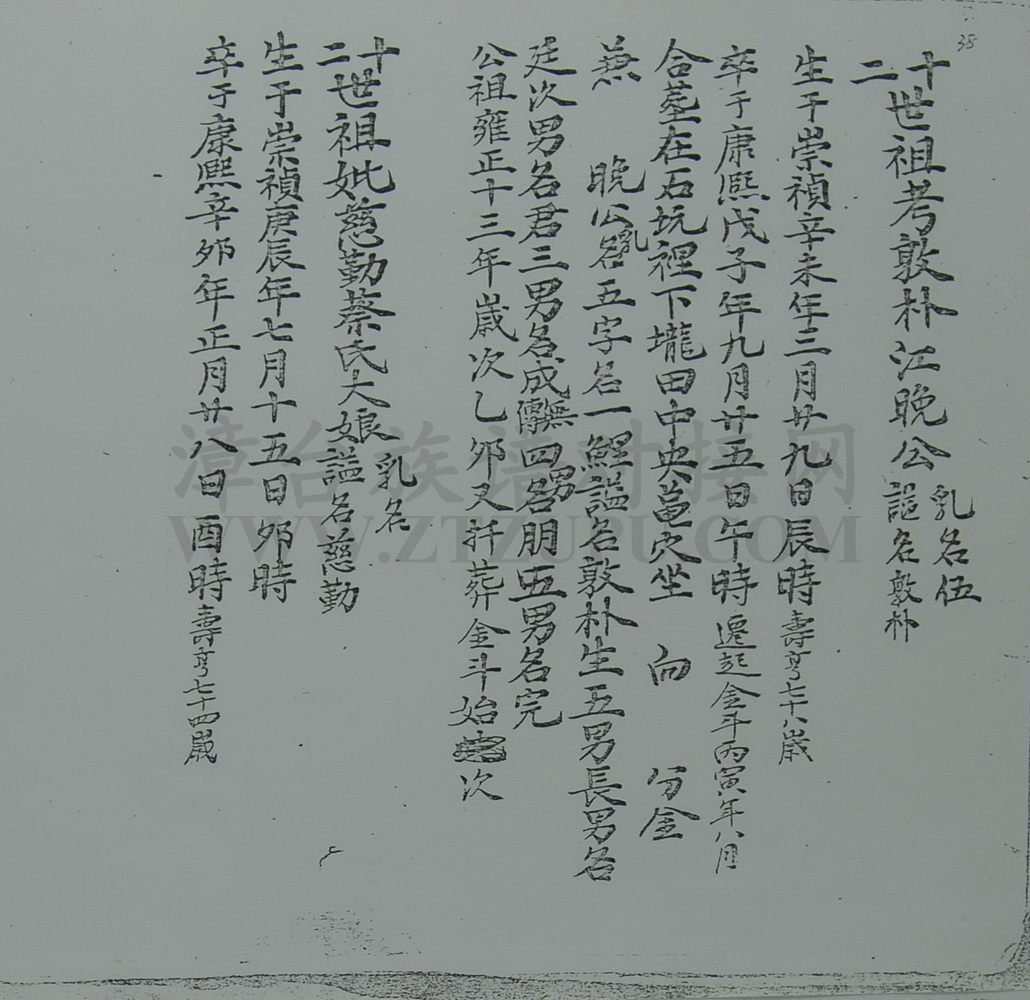 38
十二世祖考敦朴江晚公 乳名伍 諡名敦朴
生于崇禎辛未年三月廿九日辰時壽亨七十八歲
卒于康熙戊子年九月廿五日午時遷起金斗丙寅年八月
合塟在石坑裡下壠田中央黃穴坐 向 分金
兼 晚公乳名五字名一鯉諡名敦朴生五男長男名
廷次男名君三男名成無傳四男名朋五男名完
公祖雍正十三年歲次乙夘又扦葬金斗始次
十二世祖妣慈勤蔡氏大娘 乳名 諡名慈勤
生于崇禎庚辰年七月十五日夘時
卒于康熙辛夘年正月廿八日酉時壽亨七十四歲
漳台族谱对接网
WWW.ZTZUPU.COM